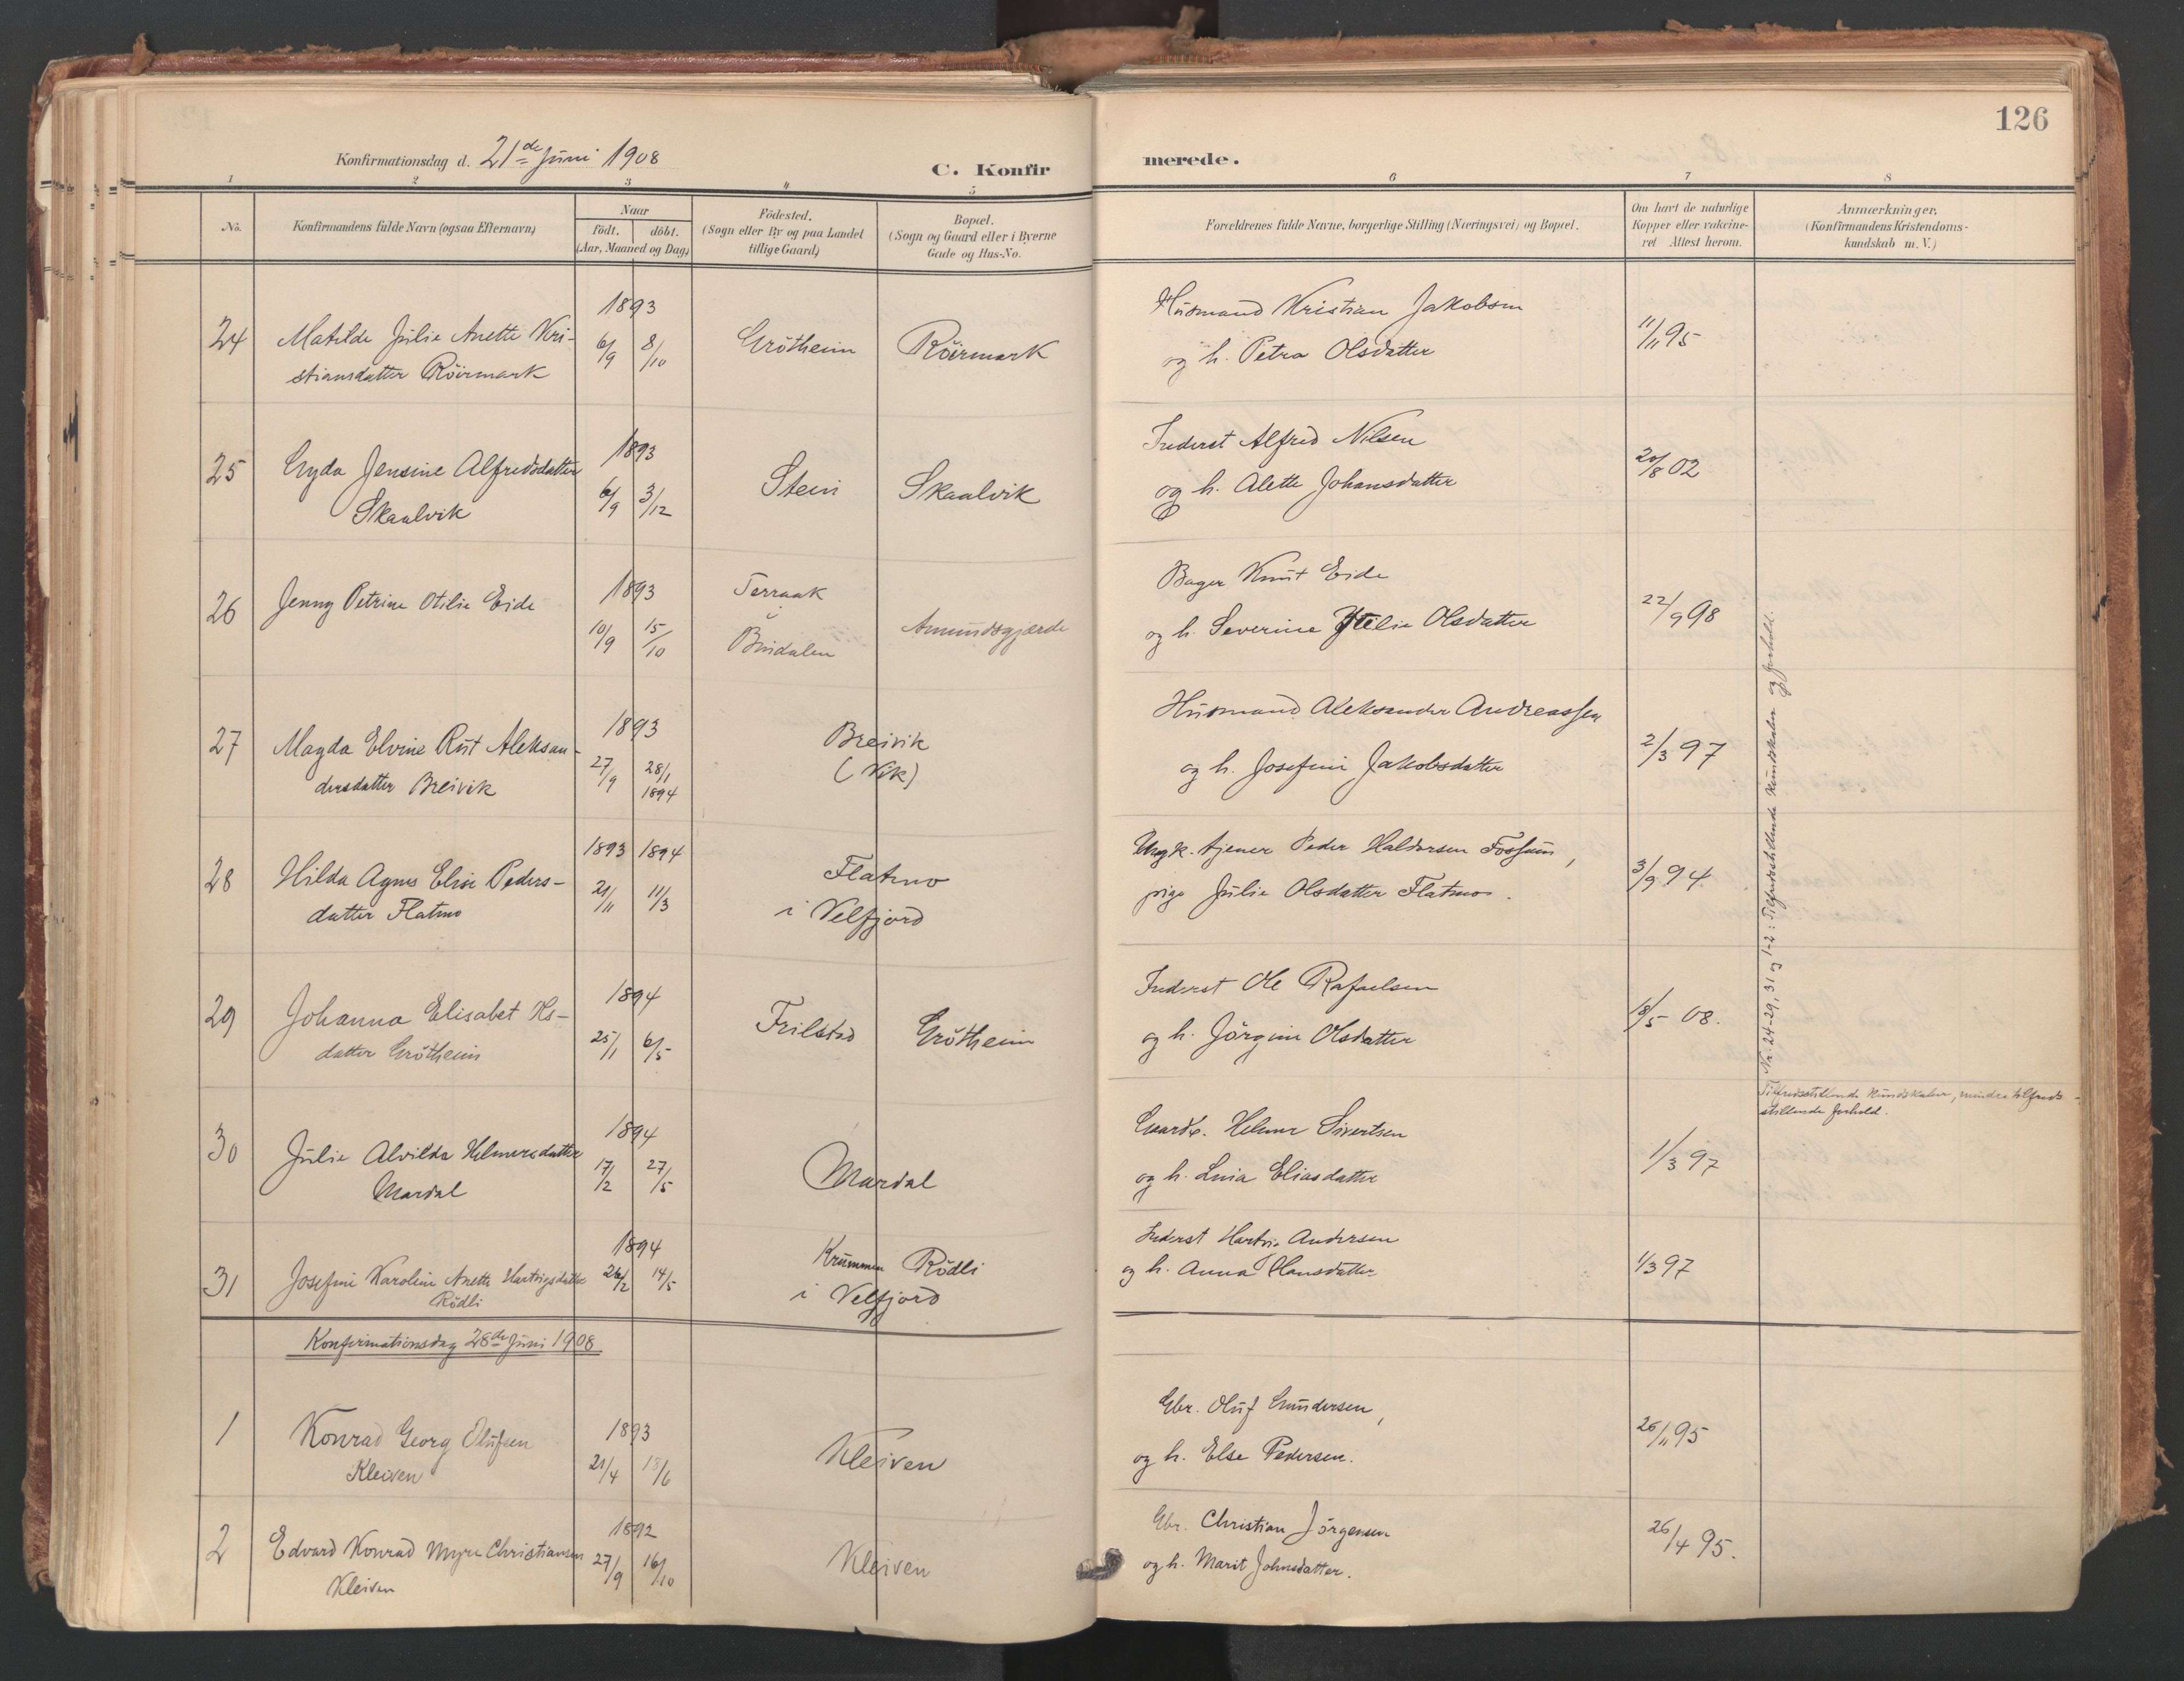 126
Konfirmationsdag d. 21de Juni 1908
C. Konfirmerede.
1 2 3 4 5 6 7 8
No.
Konfirmandens fulde Navn (ogsaa Efternavn)
Naar
födt. döbt.
(Aar, Maaned og Dag)
Födested.
(Sogn eller By og paa Landet
tillige Gaard)
Bopæl.
(Sogn og Gaard eller i Byerne
Gade og Hus-No.
Forældrenes fulde Navne, borgerlige Stilling (Næringsvei) og Bopæl.
Om havt de naturlige
Kopper eller vakcine-
ret Attest herom.
Anmærkninger.
(Konfirmandens Kristendoms-
kundskab m. V.)
24 Matilde Julie Anette Kri-
stiansdatter Röirmark
1893
6/9 8/10
Grötheim Röirmark
Husmand Kristian Jakobsen
og h. Petra Olsdatter
11/11 95
25 Gyda Jensine Alfredsdatter
Skaalvik
1893
6/9 3/12
Stein Skaalvik
Inderst Alfred Nilsen
og h. Alette Johansdatter
20/8 02
26 Jenny Petrine Otilie Eide
1893
10/9 15/10
Terraak
i
Bindalen
Amundsgjærde
Bager Knut Eide
og h. Severine Otelie Olsdatter
22/9 98
27 Magda Elvine Rut Aleksan-
dersdatter Breivik
1893
27/9 28/1
1894
Breivik
(Vik)
Husmand Aleksander Andreassen
og h. Josefine Jakobsdatter
2/3 97
28 Hilda Agnes Elise Peders-
datter Flatmo
1893 1894
21/11 11/3
Flatmo
i Velfjord
Ungk. tjener Peder Haldorsen Fossum,
pige Julie Olsdatter Flatmo.
3/9 94
29 Johanna Elisabet Ols-
datter Grötheim
1894
25/1 6/5
Trilstad Grötheim
Inderst Ole Rafaelsen
og h. Jörgine Olsdatter
18/5 08.
Nr. 24-29, 31 og 1-2: Tilfredsstillende kundskaber og forhold.
30 Julie Alvilda Helmersdatter
Mardal
1894
17/2 27/5
Mardal
Gaardb. Helmer Sivertsen
og h. Lina Eliasdatter
1/3 97
Tilfredsstillende kundskaber, mindre tilfreds-
stillende forhold.
31 Josefine Karoline Anette Hartvigsdatter
Rödli
1894
26/2 14/5
Krummen Rödli
i Velfjord
Inderst Hartvig Andersen
og h. Anna Hansdatter
1/3 97
Konfirmationsdag 28de Juni 1908
1 Konrad Georg Olufsen
Kleiven
1893
21/4 18/6
Kleiven
Gbr. Oluf Gundersen,
og h. Else Pedersen.
26/11 95
2 Edvard Konrad Myre Christiansen
Kleiven
1892
27/9 16/10
Kleiven
Gbr. Christian Jörgensen
og h. Marit Johnsdatter.
26/4 95.